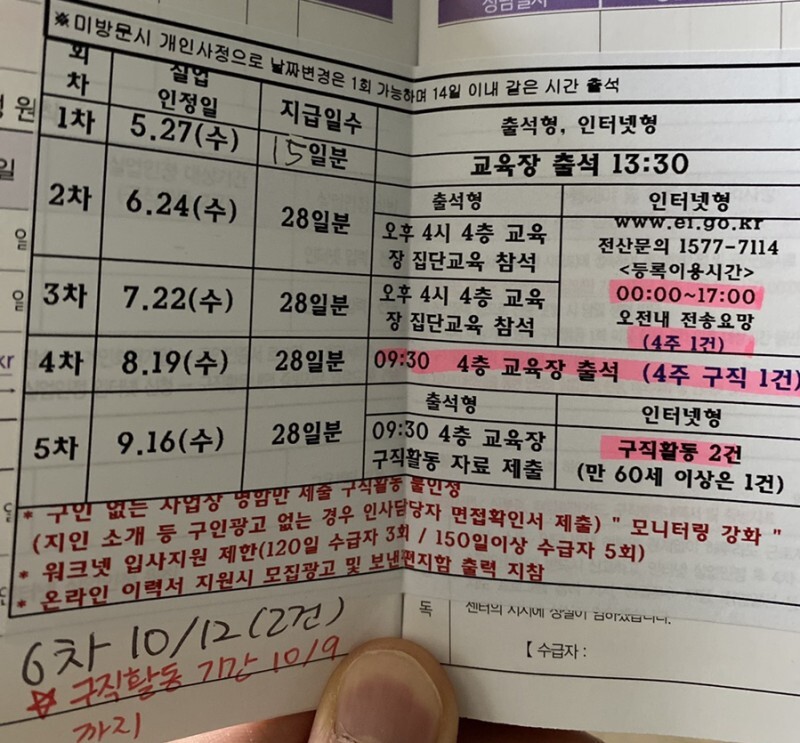 상담일시
※미방문시 개인사정으로 날짜변경은 1회 가능하며 14일 이내 같은 시간 출석
회차
실업인정일
지급일수
출석형, 인터넷형
1차
5.27(수)
15일분
교육장 출석 13:30
2차
6.24(수)
28일분
출석형
오후 4시 4층 교육
장 집단교육 참석
인터넷형
www.ei.go.kr
전산문의 1577-7114
<등록이용시간>
00:00~17:00
오전내 전송요망
(4주 1건)
3차
7.22(수)
28일분
오후 4시 4층 교육
장 집단교육 참석
4차
8.19(수)
28일분
09:30 4층 교육장 출석 (4주 구직 1건)
5차
9.16(수)
28일분
출석형
09:30 4층 교육장
구직활동 자료 제출
인터넷형
구직활동 2건
(만 60세 이상은 1건)
* 구인 없는 사업장 명함만 제출 구직활동 불인정
(지인 소개 등 구인광고 없는 경우 인사담당자 면접확인서 제출) " 모니터링 강화 "
* 워크넷 입사지원 제한(120일 수급자 3회 / 150일이상 수급자 5회)
* 온라인 이력서 지원시 모집광고 및 보낸편지함 출력 지참
6차 10/12(2건)
☆ 구직활동 기간 10/9
까지
독
센터의 지시에 성실히 임하였습니다.
【 수급자 :